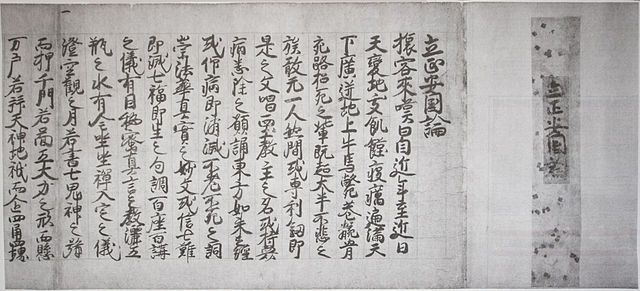 立正安國論
立正安國論
旅客来嘆曰自近年至近日
天變地夭飢饉疫癘遍満天
下廣迸地上牛馬斃巷骸骨
充路招死之輩既超大半不悲之
族敢无一人然間或専利劔即
是之文唱西土教主之名或持衆
病悉除之願誦東方如来之經
或仰病即消滅不老不死之詞
崇法華真實之妙文或信七難
即滅七福即生之句調百座百講
之儀有因秘密真言之教灑五
瓶之水有全坐禅入定之儀
澄空觀之月若書七鬼神之号
而押千門若圖五大力之形而懸
万戸若拝天神地祇而企四角四堺